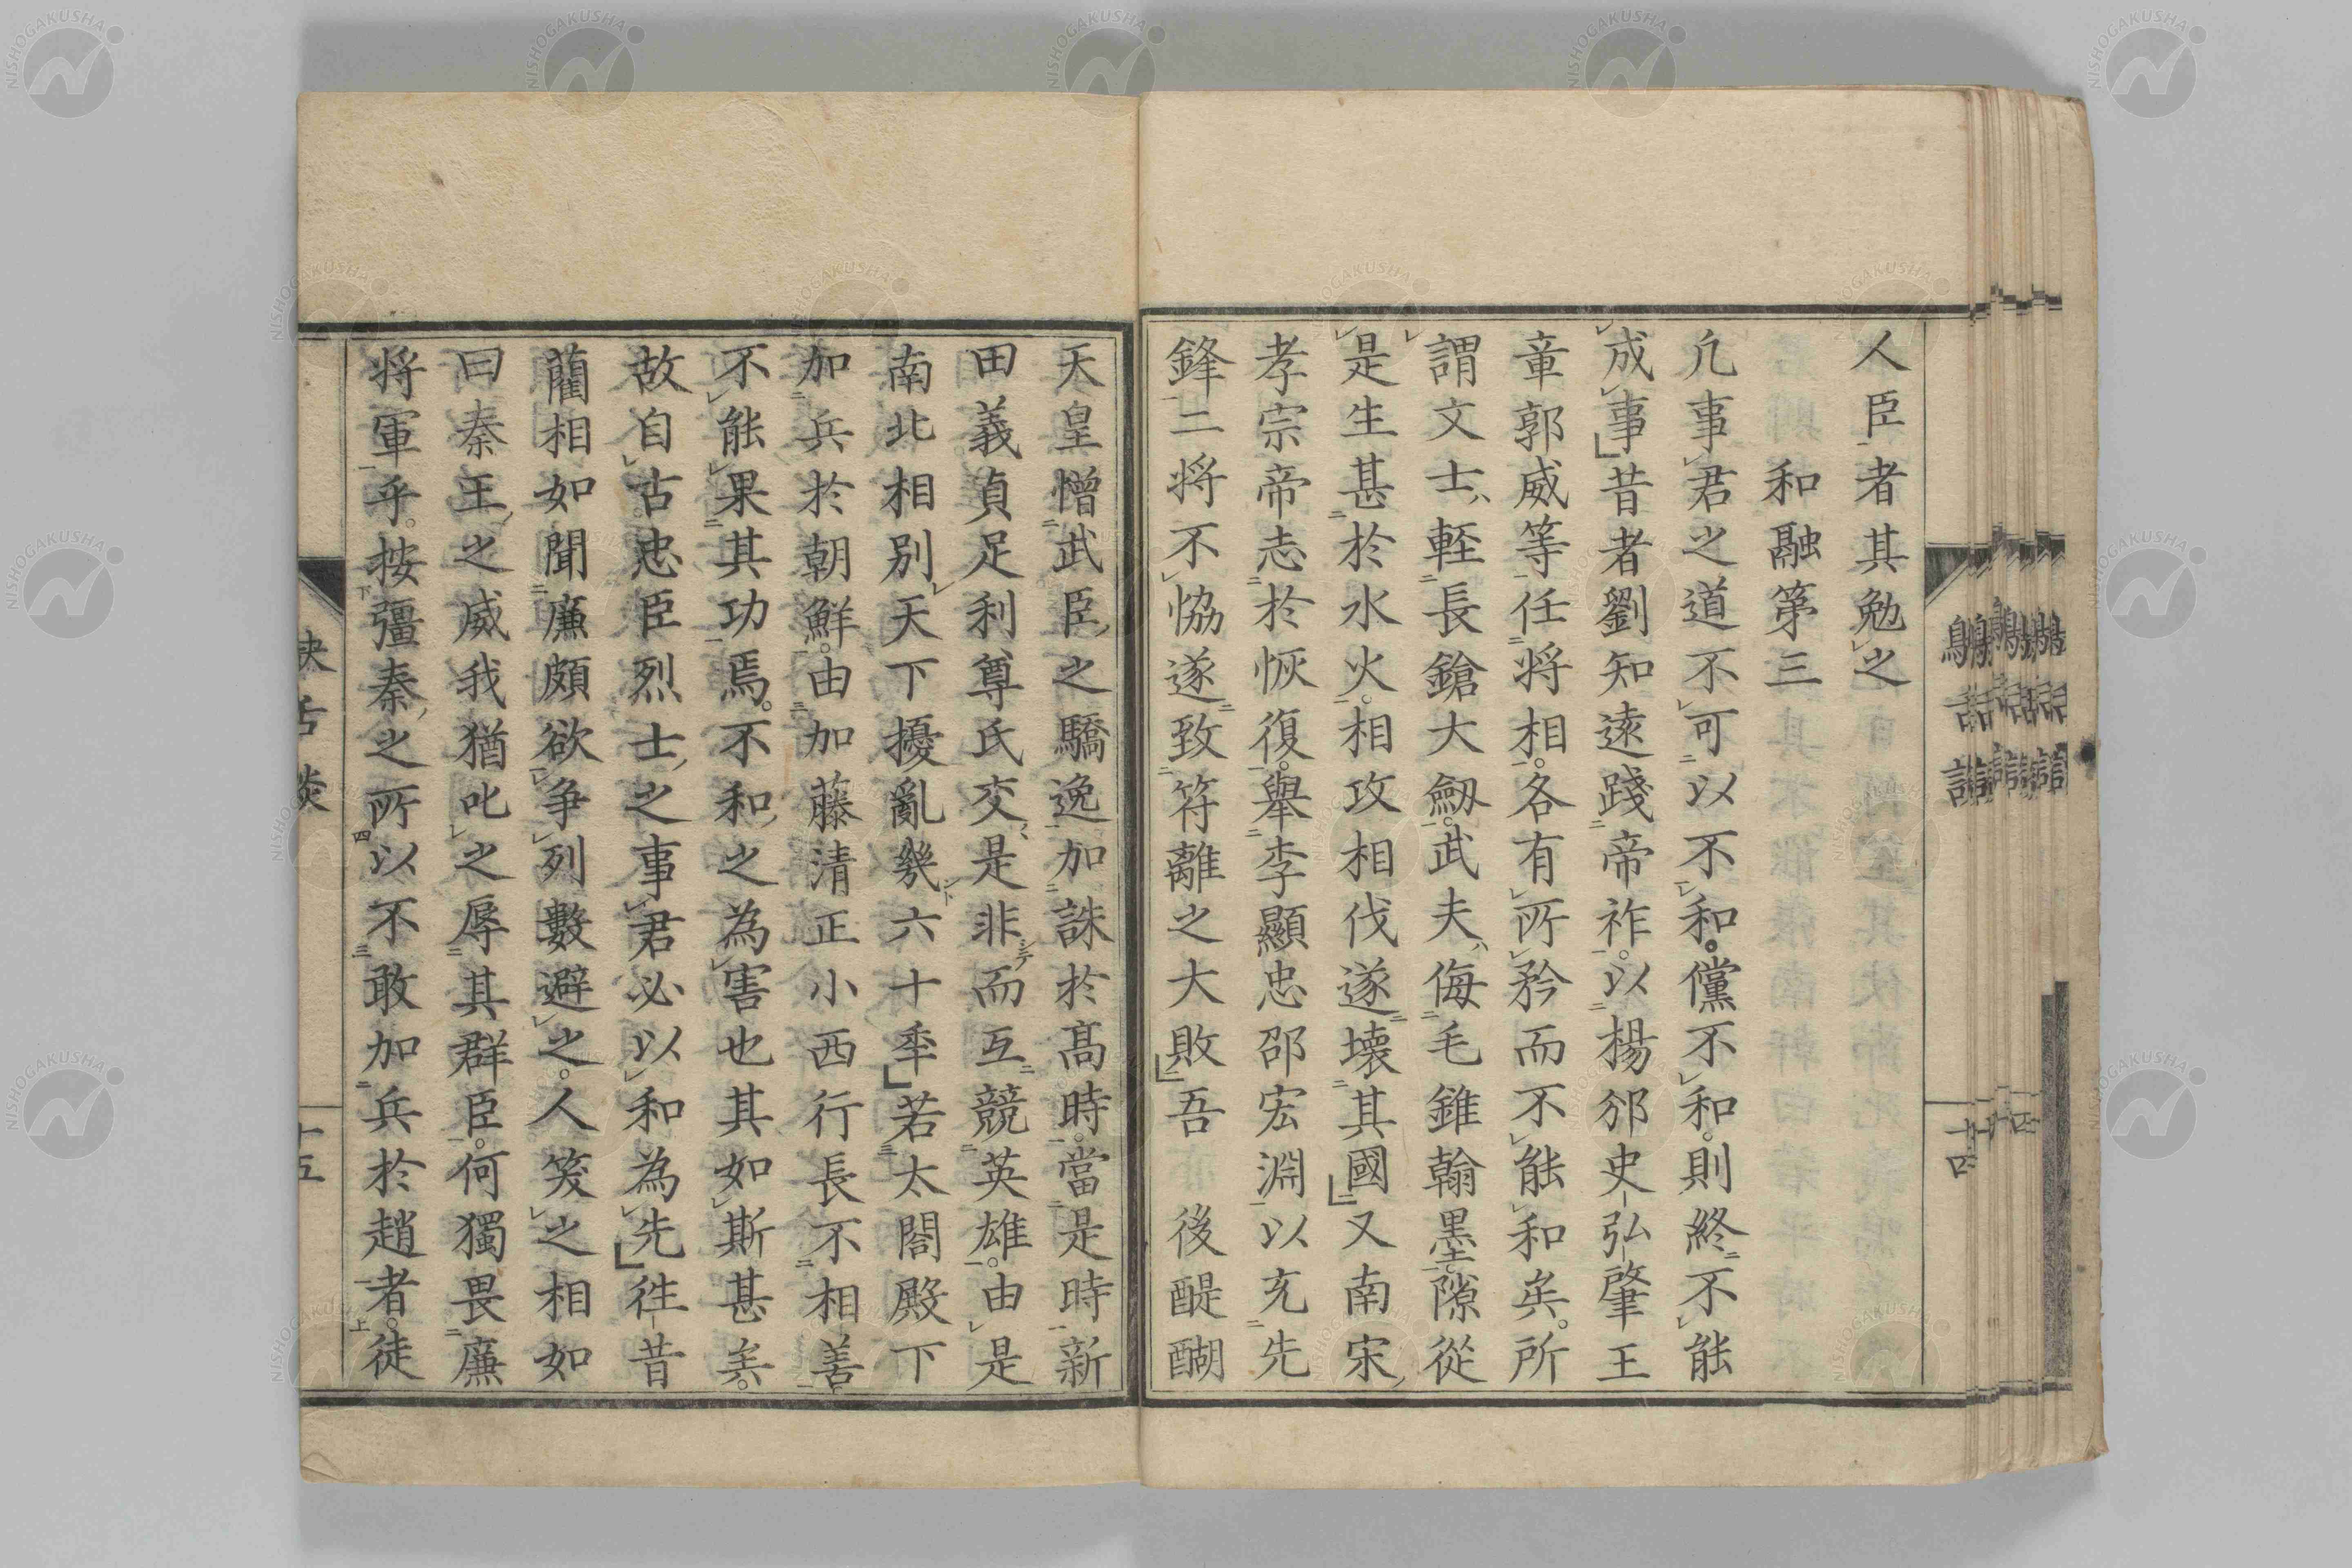 人臣者其勉之
和融第三
凢事君之道不可以不和。儻不和。則終不能
成事昔者劉知遠踐帝祚。以楊邠史弘肇王
章郭威等任將相。各有所矜而不能和矣。所
謂文士ハ輕長鎗大劔。武夫ハ侮毛錐翰墨隙從
是生甚於水火。相攻相伐遂壞其國又南宋ノ
孝宗帝志於恢復。擧李顯忠邵宏淵以充先
鋒二將不恊遂致符離之大敗吾 後醍醐
天皇憎武臣ノ之驕逸加誅於髙時。當是時新
田義貞足利尊氏交〻是非シテ而互競英雄。由是
南北相別天下擾亂幾ント六十秊若太閤殿下
加兵於朝鮮。由加藤清正小西行長不相善
不能果其功焉。不和ノ之為害也其如斯甚矣。
故自古。忠臣烈士ノ之事君必以和為先徃昔
藺相如聞廉頗欲爭列數避之。人笑之相如
曰秦王ノ之威我猶叱之辱其群臣。何獨畏廉
將軍乎。按彊秦ノ之所以不敢加兵於趙者。徒
鴃舌談
十五
十四
NISHOGAKUSHA